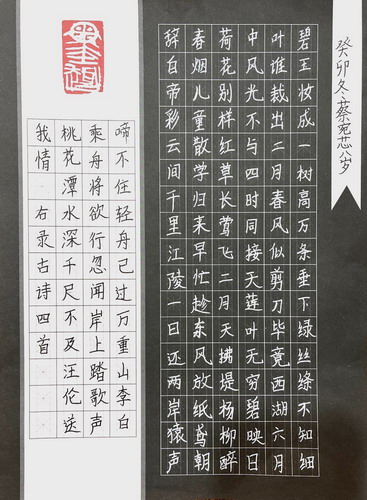 癸卯冬蔡宛芯八岁
碧玉妆成一树高万条垂下绿丝绦不知细
叶谁裁出二月春风似剪刀毕竟西湖六月
中风光不与四时同接天莲叶无穷碧映日
荷花别样红草长莺飞二月天拂堤杨柳醉
春烟儿童散学归来早忙趁东风放纸鸢朝
辞白帝彩云间千里江陵一日还两岸猿声
啼不住轻舟已过万重山李白
乘舟将欲行忽闻岸上踏歌声
桃花潭水深千尺不及汪伦送
我情 右录古诗四首